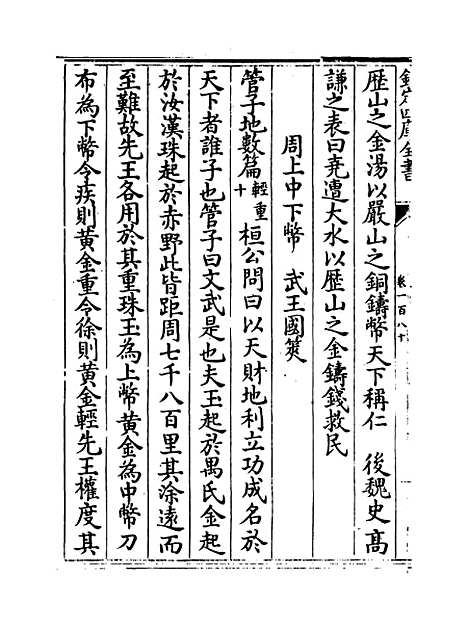 欽定四庫全書
卷一百八十
歴山之金湯以嚴山之銅鑄幣天下稱仁　後魏史高
謙之表曰堯遭大水以歴山之金鑄錢救民
周上中下幣　武王國筴
管子地數篇輕重十　桓公問曰以天財地利立功成名於
天下者誰子也管子曰文武是也夫玉起於禺氏金起
於汝漢珠起於赤野此皆距周七千八百里其涂遠而
至難故先王各用於其重珠玉為上幣黄金為中幣刀
布為下幣令疾則黄金重令徐則黄金輕先王權度其